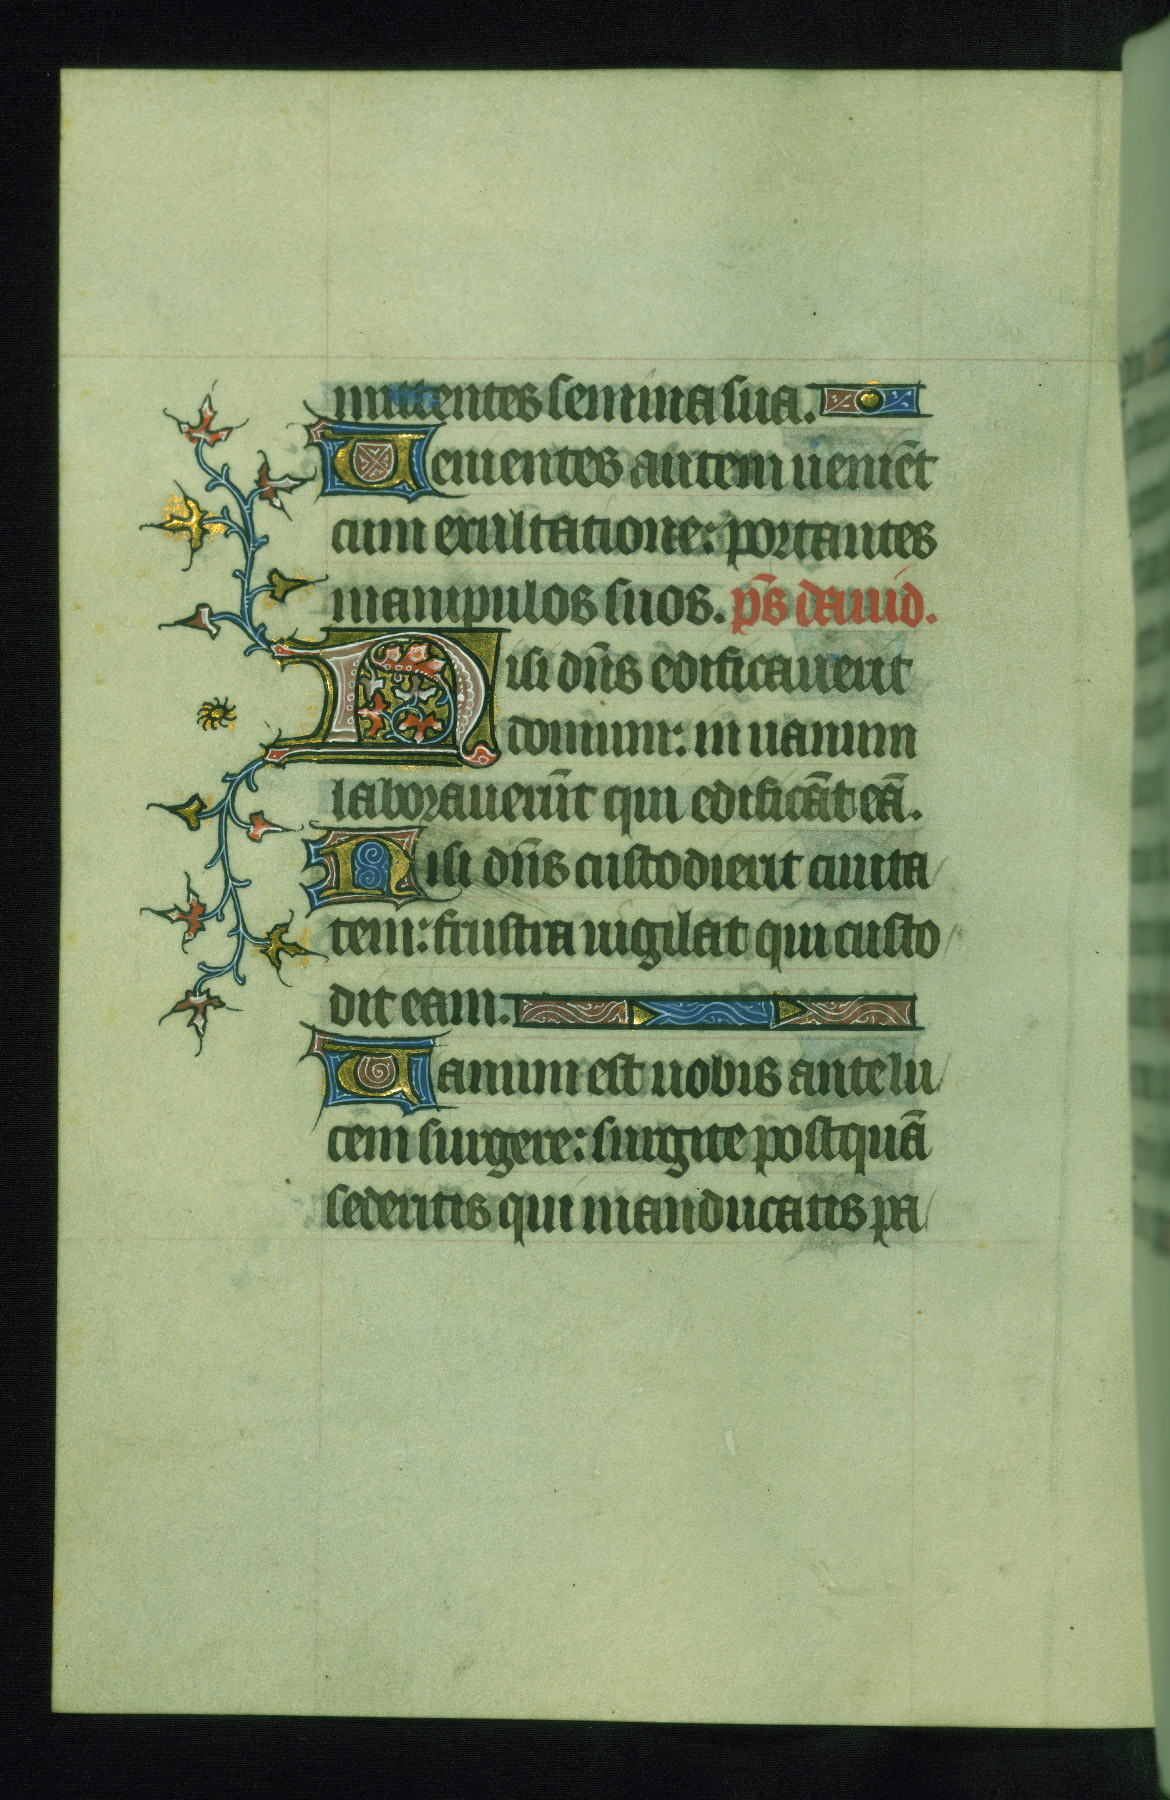 mittentes semina sua.
Uenientes autem ueniēt
cum exultatione: portantes
manipulos suos. p̄s dauid.
Nisi dn̄s edificauerit
domum: in uanum
laborauerūt qui edificāt eā.
Nisi dn̄s custodierit ciuita
tem: frustra uigilat qui custo
dit eam.
Uanum est uobis ante lu
cem surgere: surgite postquā
sederitis qui manducatis pa